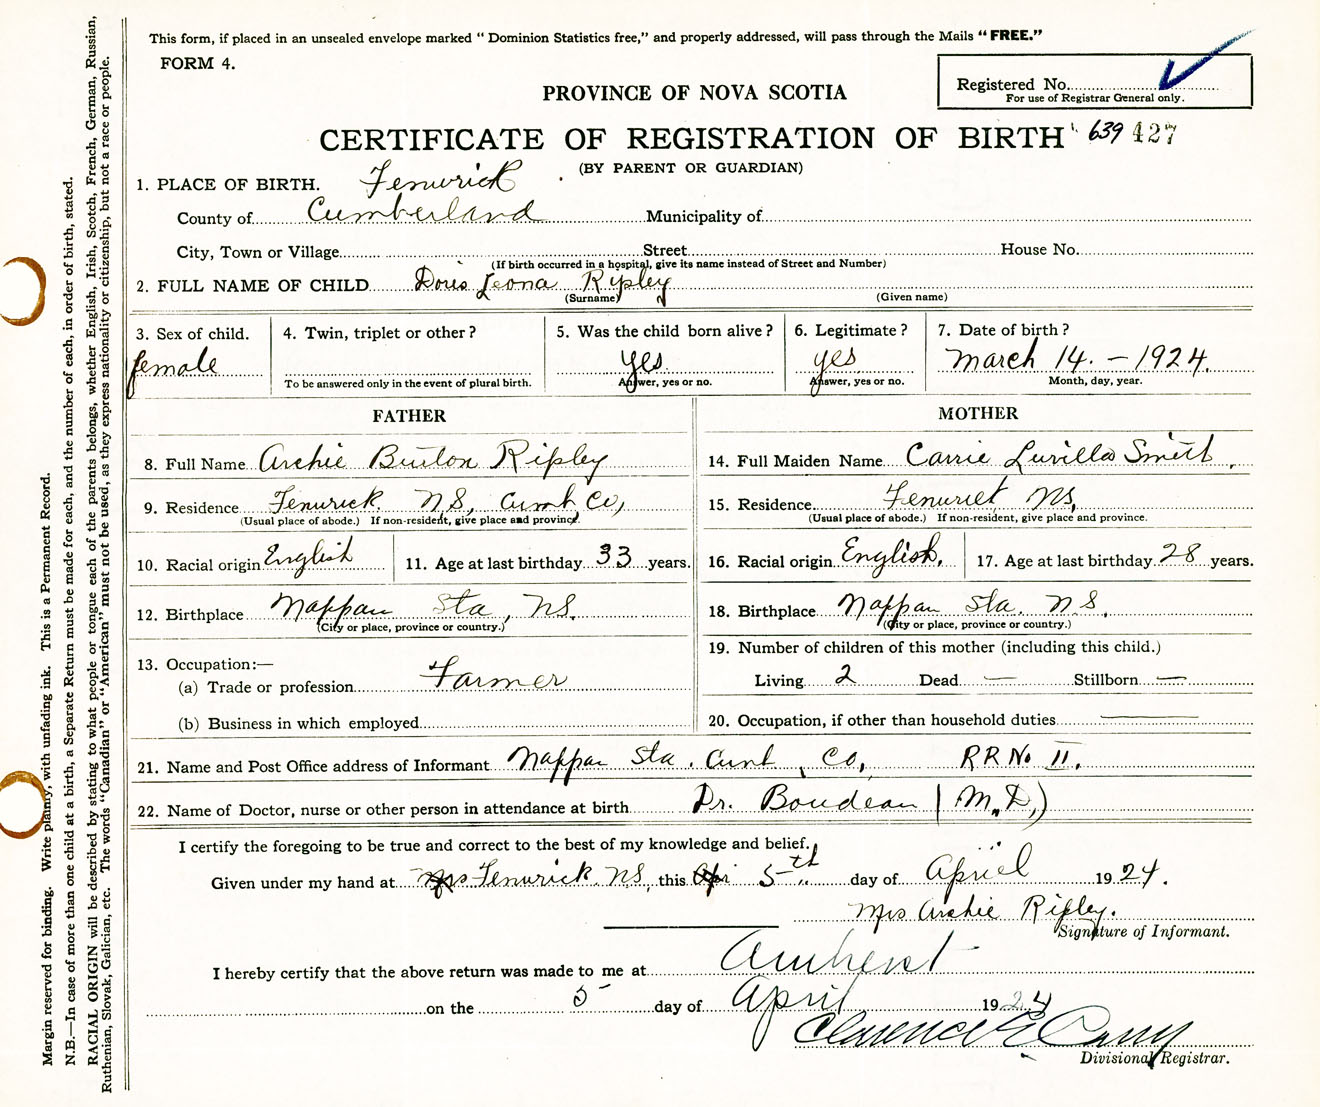 This form, if placed in an unsealed envelope marked “ Dominion Statistics free,” and properly addressed, will pass through the Mails “FREE.”
FORM 4.
Registered No.
For use of Registrar General only.
PROVINCE OF NOVA SCOTIA
CERTIFICATE OF REGISTRATION OF BIRTH 639 427
(BY PARENT OR GUARDIAN)
1. PLACE OF BIRTH. Fenwrick
County of Cumberland Municipality of
City, Town or Village Street House No.
(If birth occurred in a hospital, give its name instead of Street and Number)
2. FULL NAME OF CHILD Doris Leona Ripley
(Surname) (Given name)
3. Sex of child. 4. Twin, triplet or other ? 5. Was the child born alive ? 6. Legitimate ? 7. Date of birth ?
female yes yes March 14. – 1924.
To be answered only in the event of plural birth. Answer, yes or no. Answer, yes or no. Month, day, year.
FATHER
8. Full Name Archie Burton Ripley
9. Residence Fenwrick N.S, Cumb Co,
(Usual place of abode.) If non-resident, give place and province.
10. Racial origin English 11. Age at last birthday 33 years.
12. Birthplace Nappan Sta, N.S.
(City or place, province or country.)
13. Occupation:—
(a) Trade or profession Farmer
(b) Business in which employed
MOTHER
14. Full Maiden Name Carrie Luvilla Smith.
15. Residence NS,
(Usual place of abode.) If non-resident, give place and province.
16. Racial origin English. 17. Age at last birthday 28 years.
18. Birthplace Nappan Sta. N S.
(City or place, province or country.)
19. Number of children of this mother (including this child.)
Living 2 Dead — Stillborn —
20. Occupation, if other than household duties —
21. Name and Post Office address of Informant Nappan Sta. Co, R R No II.
22. Name of Doctor, nurse or other person in attendance at birth Dr. Boudeau (M.D,)
I certify the foregoing to be true and correct to the best of my knowledge and belief.
Given under my hand at Fenwrick. N.S, this 5th day of April 1924.
Mrs Archie Ripley.
Signature of Informant.
I hereby certify that the above return was made to me at Amherst
on the 5 day of April 1924
Clarence E
Divisional Registrar.
Margin reserved for binding. Write plainly, with unfading ink. This is a Permanent Record.
N.B.—In case of more than one child at a birth, a Separate Return must be made for each, and the number of each, in order of birth, stated.
RACIAL ORIGIN will be described by stating to what people or tongue each of the parents belongs, whether English, Irish, Scotch, French, German, Russian,
Ruthenian, Slovak, Galician, etc. The words “Canadian” or “American” must not be used, as they express nationality or citizenship, but not a race or people.